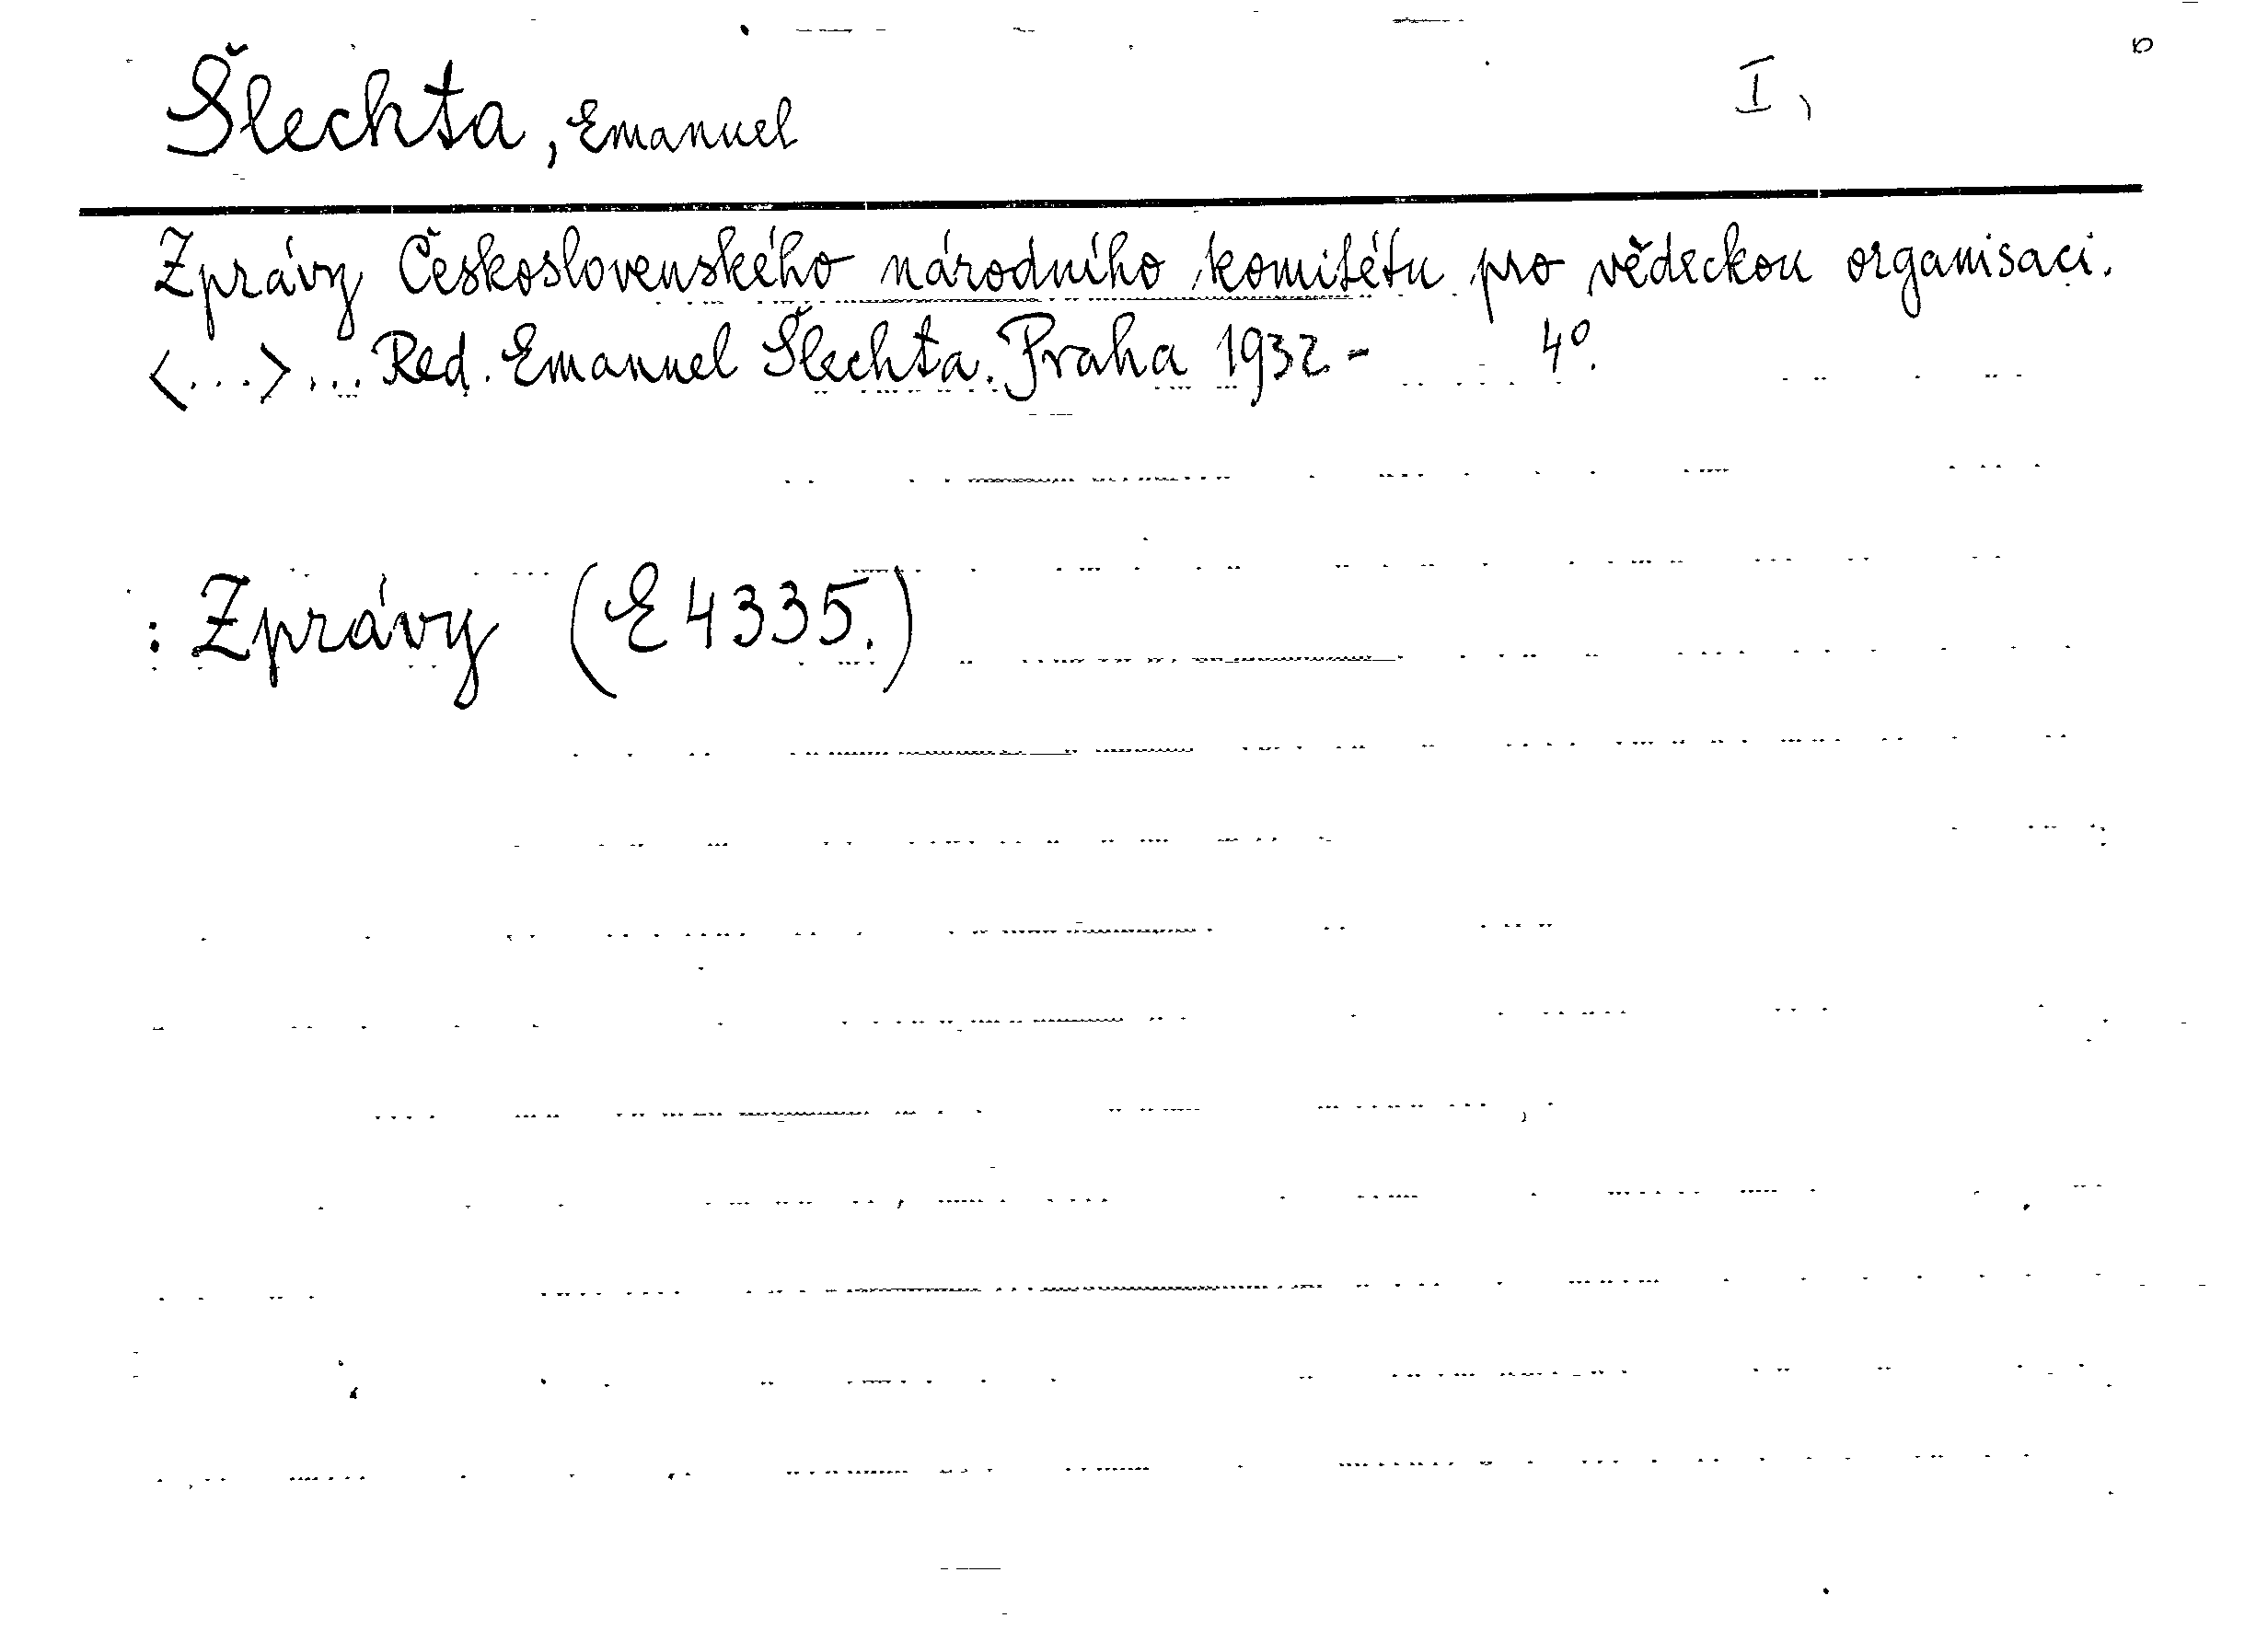 Šlechta, Emanuel I,
Zprávy Československého národního komitétu pro vědeckou organisaci.
<...>... Red. Emanuel Šlechta. Praha 1932- 4º.
: Zprávy (E 4335.)